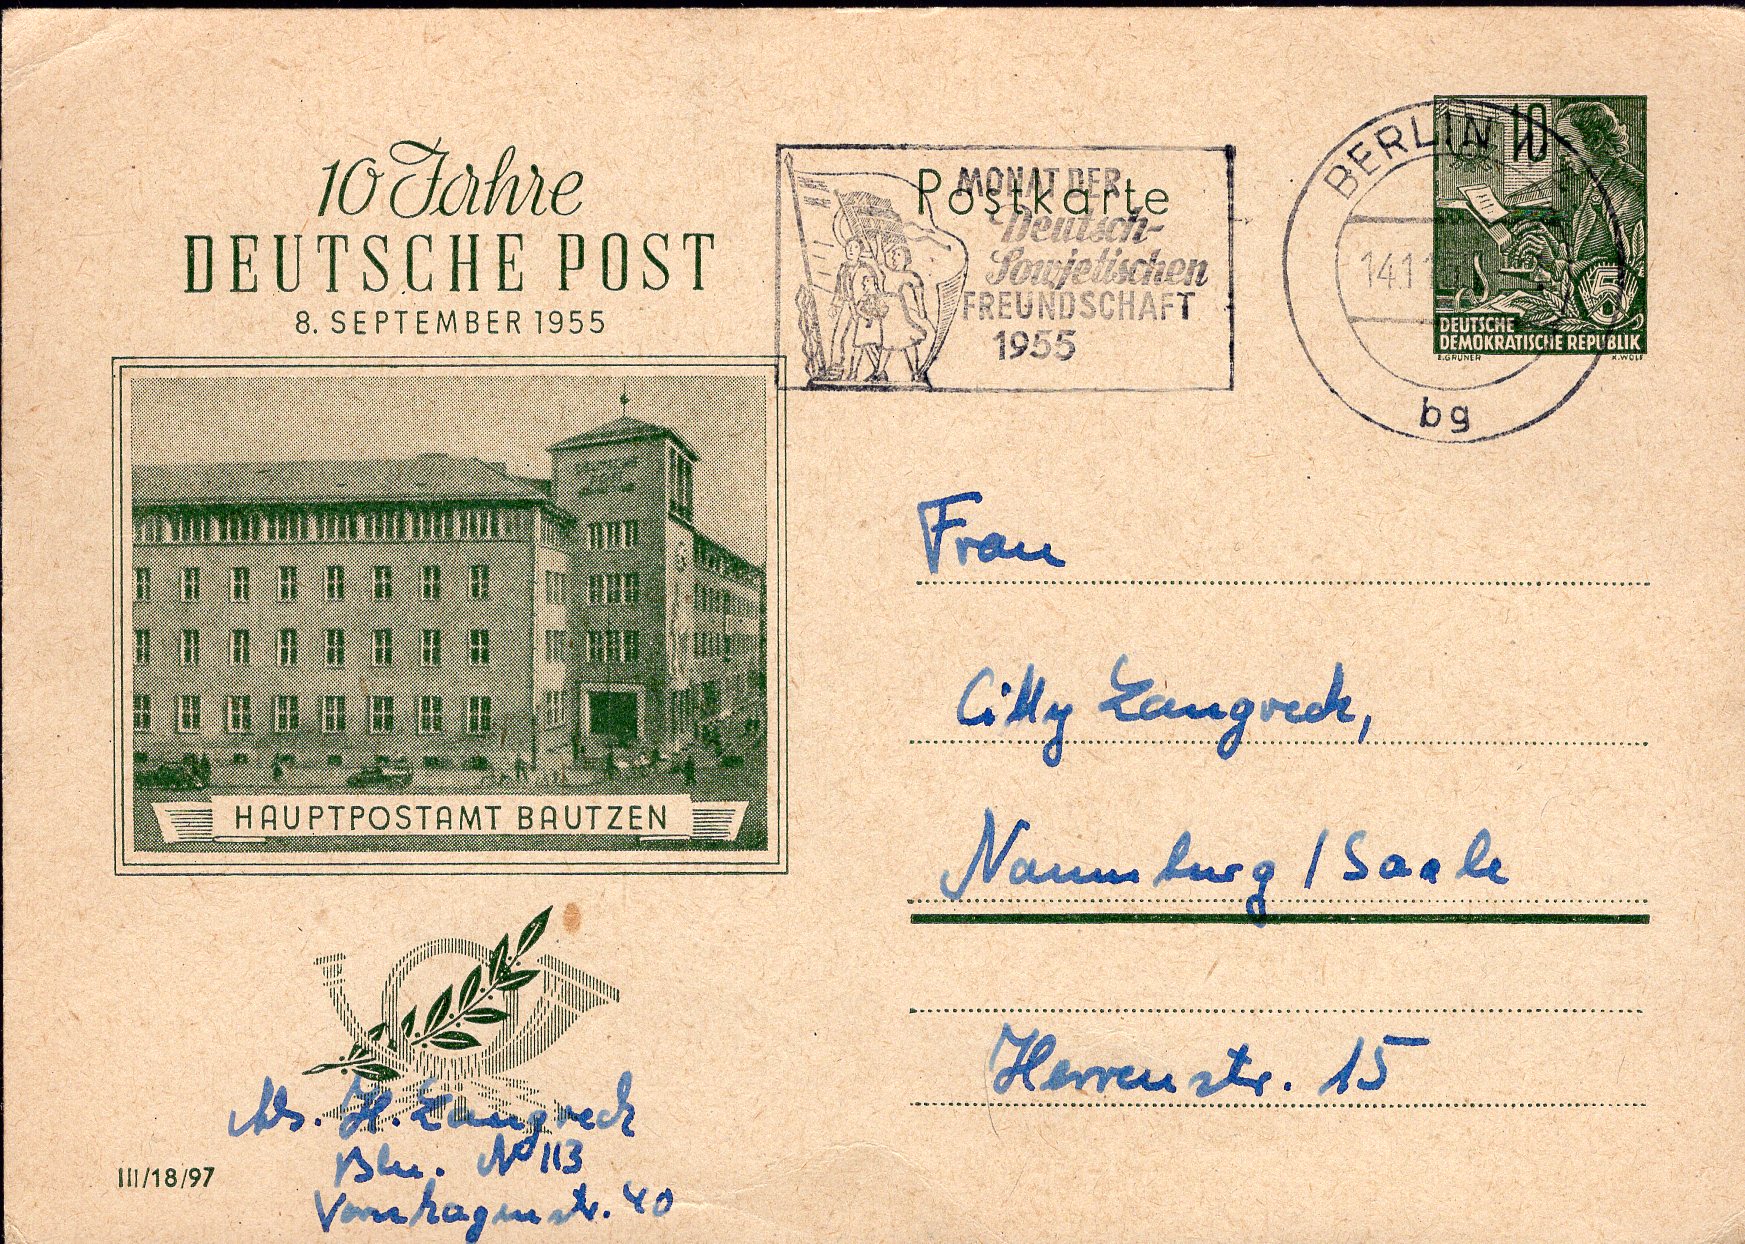 10 Jahre
DEUTSCHE POST
8. SEPTEMBER 1955
HAUPTPOSTAMT BAUTZEN
III/18/97
Postkarte
MONAT DER
Deutsch-
Sowjetischen
FREUNDSCHAFT
1955
BERLIN
bg
10
5
DEUTSCHE
DEMOKRATISCHE REPUBLIK
E.GRUNER K.WOLF
Frau
Cilly Langreck,
Naumburg / Saale
Herrenstr. 15
Abs. H. Langreck
Bln. No 113
Varnhagenstr. 40